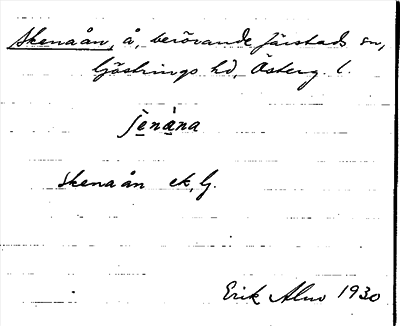 Skenaån, å, berövande Järstads sn,
Göstrings hd, Österg. l.
ʃenàna
Skenaån ek, Gj.
Erik Alm 1930